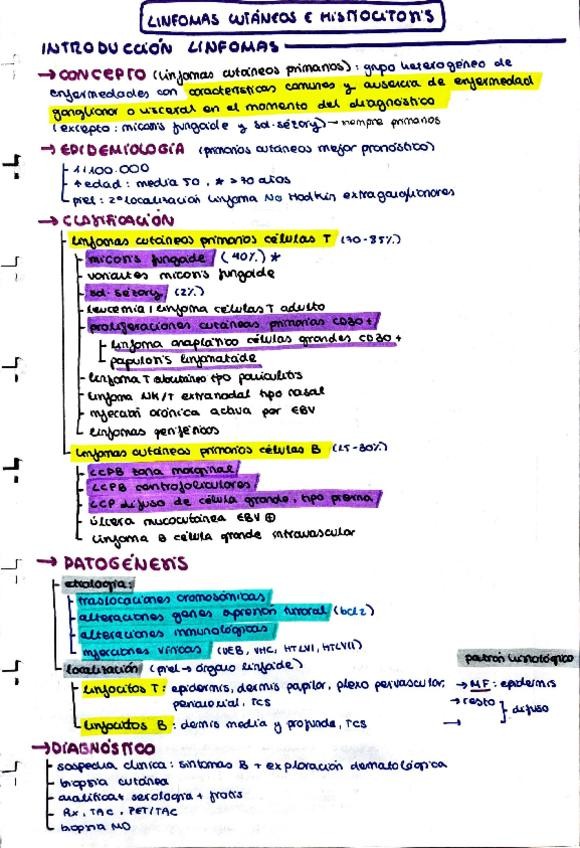 LINFOMAS CUTÁNEOS E HISTIOCITOSIS
INTRODUCCIÓN LINFOMAS
→ CONCEPTO (linfomas cutáneos primarios): grupo heterogéneo de
enfermedades con características comunes y ausencia de enfermedad
ganglionar o visceral en el momento del diagnóstico
(excepto: micosis fungoide y sd. sézary) → siempre primarios
→ EPIDEMIOLOGÍA (primarios cutáneos mejor pronóstico)
1/100.000
↑ edad: media 50, * >70 años
piel: 2ª localización linfoma No Hodkin extraganglionares
→ CLASIFICACIÓN
linfomas cutáneos primarios células T (70-85%)
micosis fungoide (40%) *
variantes micosis fungoide
sd. sézary (2%)
leucemia / linfoma células T adulto
proliferaciones cutáneas primarias CD30+
linfoma anaplásico células grandes CD30+
papulosis linfomatoide
linfoma T subcutáneo tipo paniculitis
linfoma NK/T extranodal tipo nasal
infección crónica activa por EBV
linfomas periféricos
linfomas cutáneos primarios células B (15-30%)
LCPB zona marginal
LCPB centrofoliculares
LCP difuso de célula grande, tipo pierna
úlcera mucocutánea EBV ⊕
linfoma B célula grande intravascular
→ PATOGÉNESIS
etiología:
traslocaciones cromosómicas
alteraciones genes supresión tumoral (bcl2)
alteraciones inmunológicas
infecciones víricas (VEB, VHC, HTLVI, HTLVII)
localización (piel → órgano linfoide)
linfocitos T: epidermis, dermis papilar, plexo perivascular,
perianexial, TCS
linfocitos B: dermis media y profunda, TCS
patrón histológico
→ MF: epidermis
→ resto
→
} difuso
→ DIAGNÓSTICO
sospecha clínica: síntomas B + exploración dermatológica
biopsia cutánea
analítica + serología + frotis
Rx, TAC, PET/TAC
biopsia MO